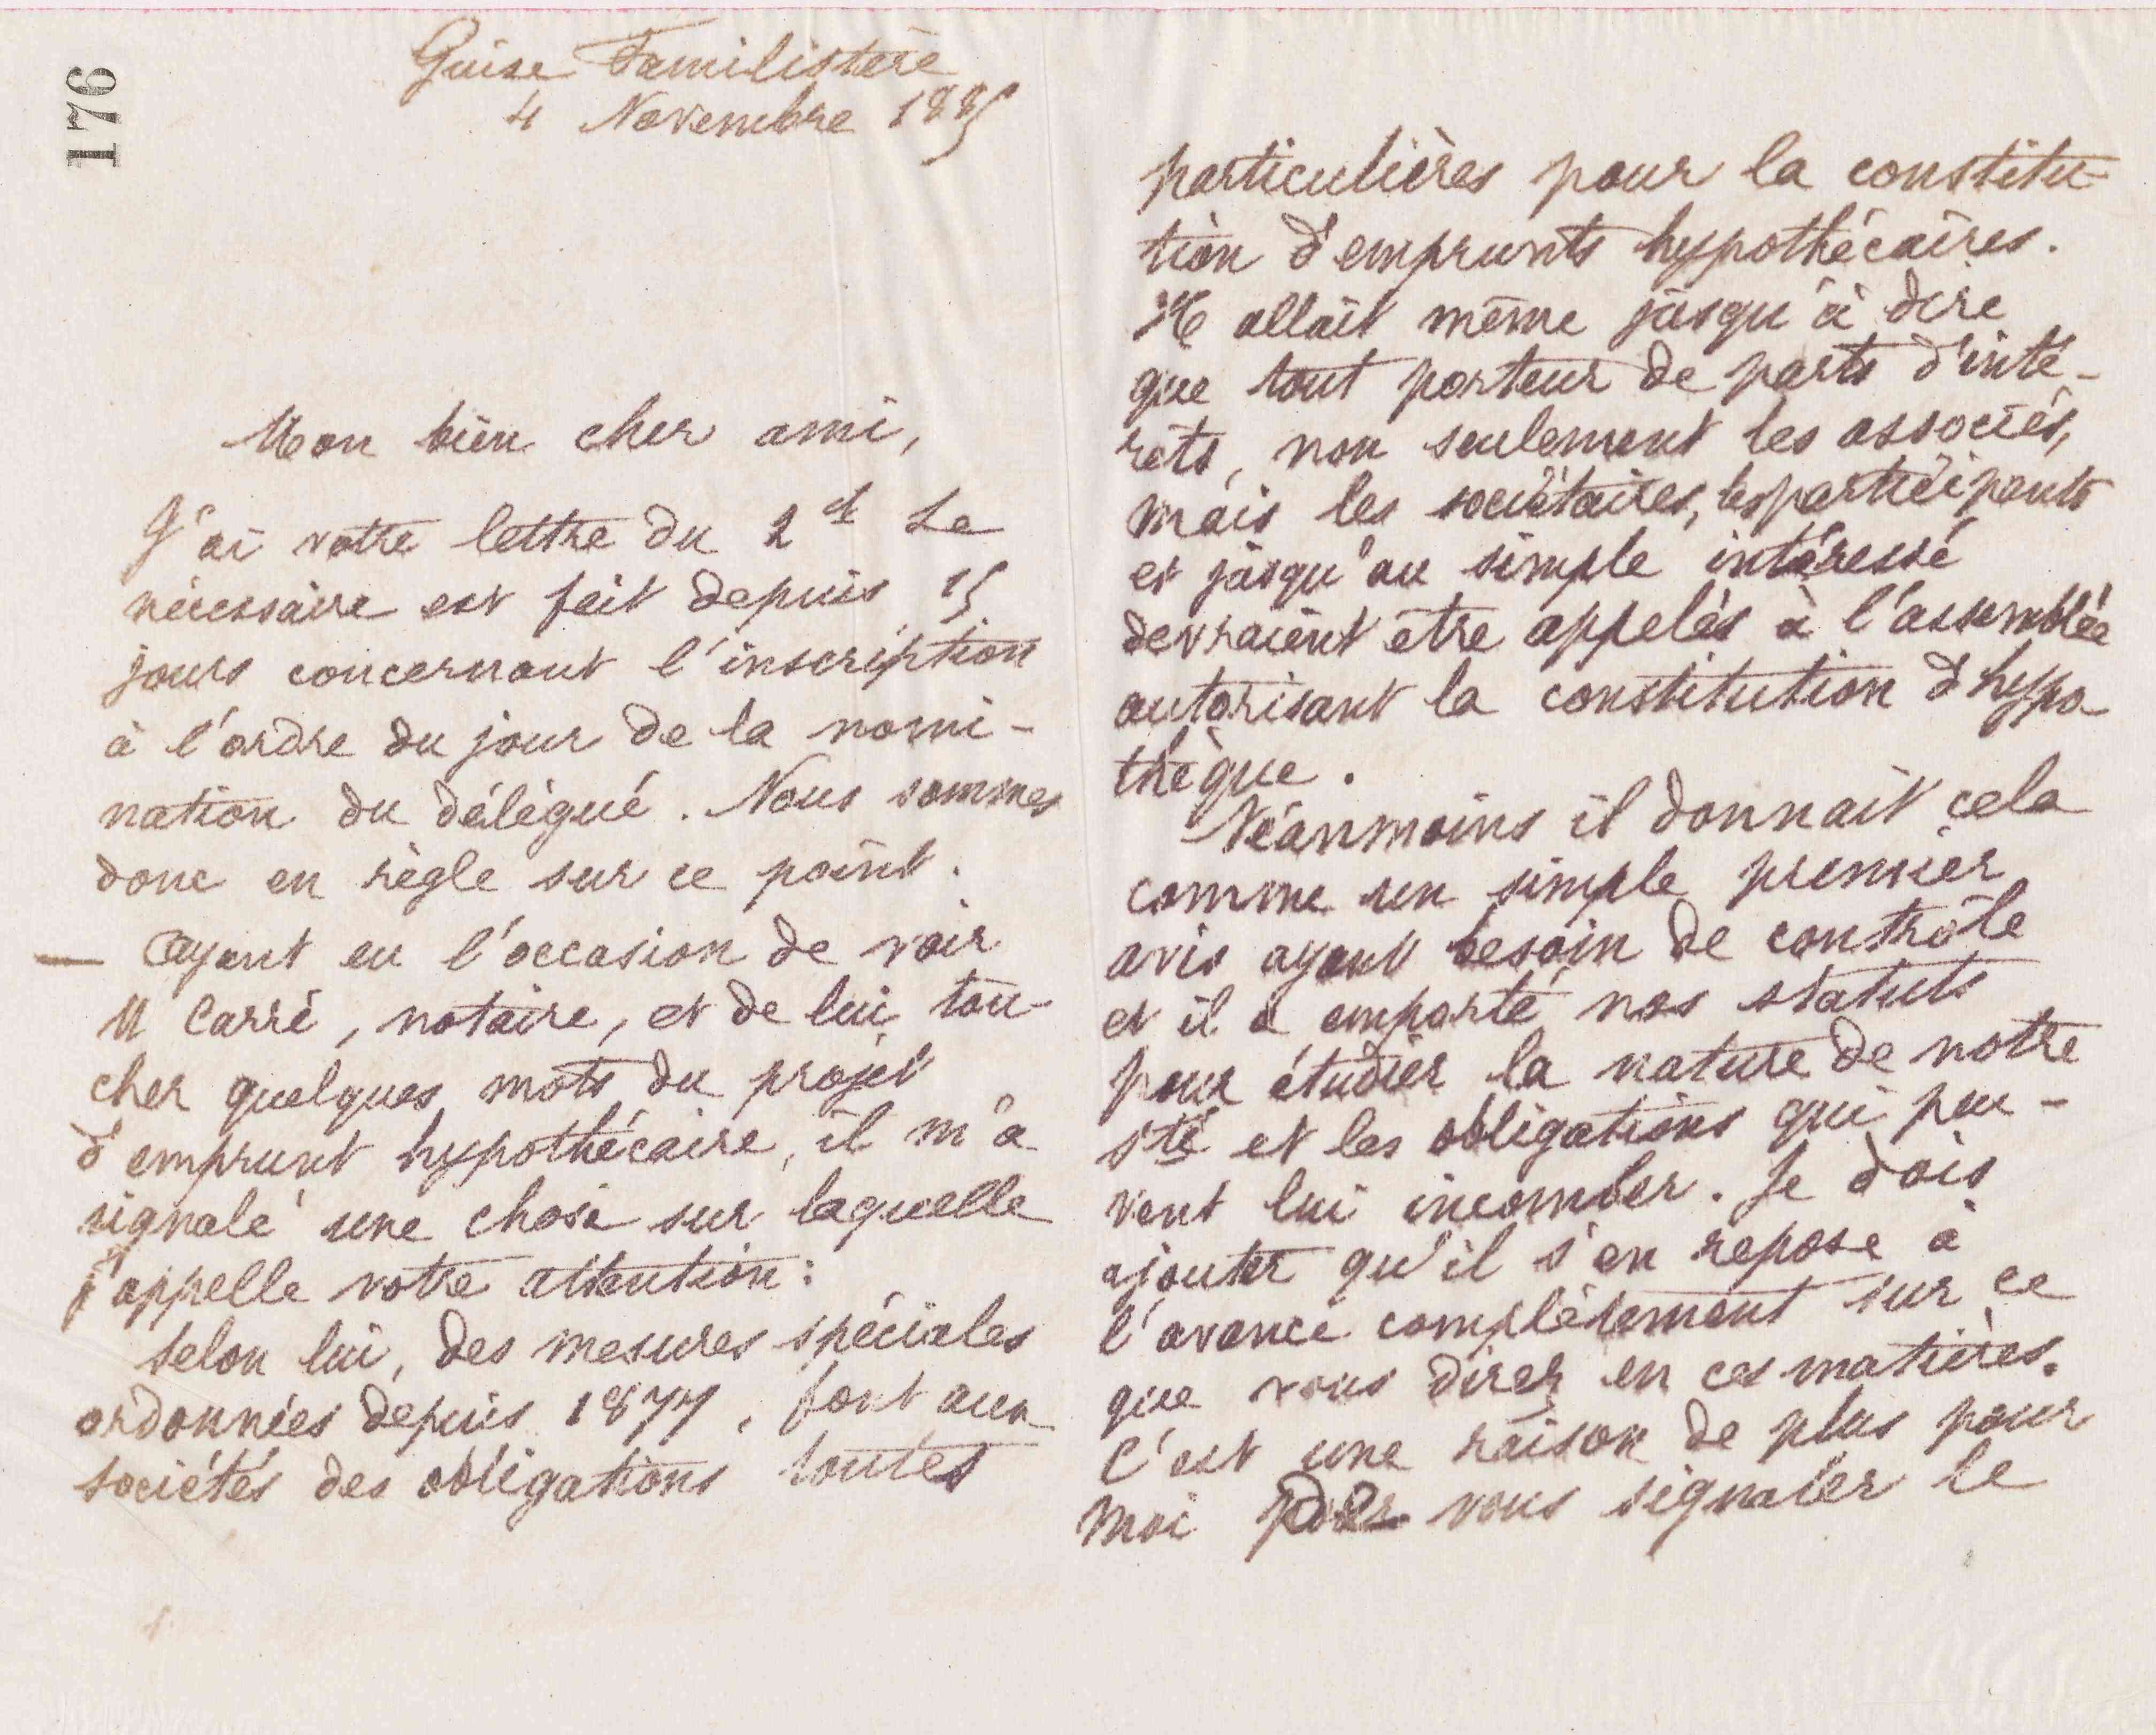 176
Guise Familistère
4 Novembre 1885
Mon bien cher ami,
J'ai votre lettre du 2 ct Le
nécessaire est fait depuis 15
jours concernant l'inscription
à l'ordre du jour de la nomi-
nation du délégué. Nous sommes
donc en règle sur ce point.
— Ayant eu l'occasion de voir
M Carré, notaire, et de lui tou-
cher quelques mots du projet
d'emprunt hypothécaire, il m'a
signalé une chose sur laquelle
j'appelle votre attention:
Selon lui, des mesures spéciales
ordonnées depuis 1877, font aux
sociétés des obligations toutes
particulières pour la constitu-
tion d'emprunts hypothécaires.
Il allait même jusqu'à dire
que tout porteur de parts d'inté-
rêts, non seulement les associés,
mais les sociétaires, les participants
et jusqu'au simple intéressé
devraient être appelés à l'assemblée
autorisant la constitution d'hypo
thèque.
Néanmoins il donnait cela
comme un simple premier
avis ayant besoin de contrôle
et il a emporté nos statuts
pour étudier la nature de notre
sté et les obligations qui peu-
vent lui incomber. Je dois
ajouter qu'il s'en repose à
l'avance complètement sur ce
que vous direz en ces matières.
C'est une raison de plus pour
moi de vous signaler le